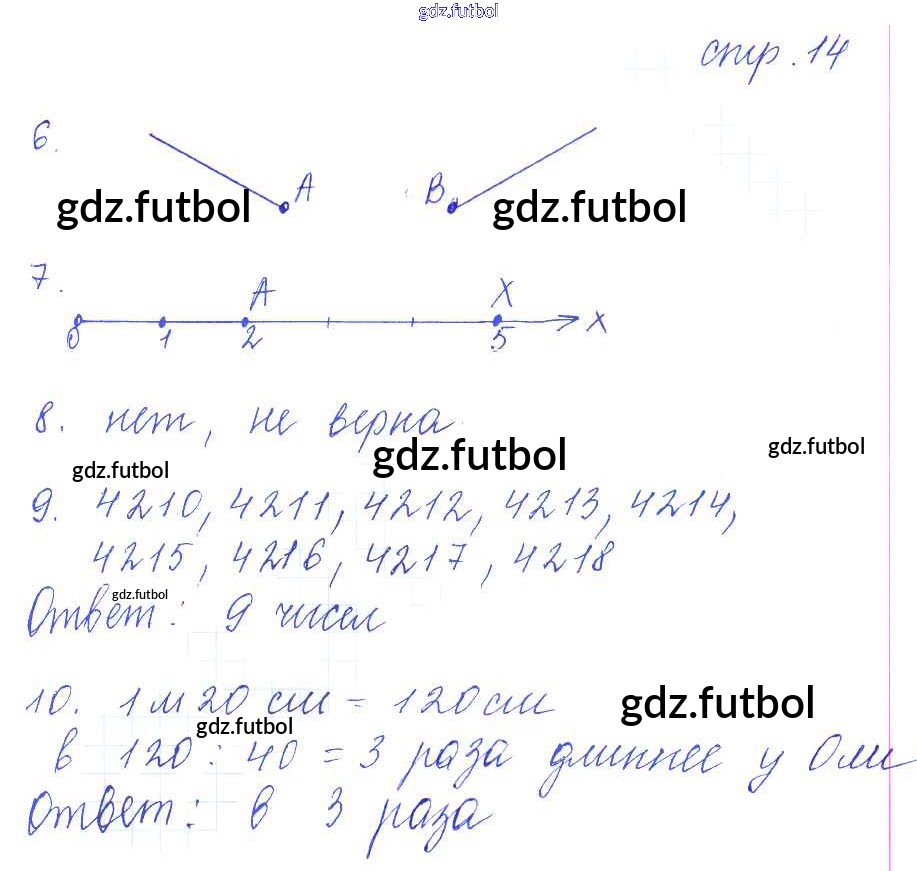 gdz.futbol
стр. 14
6.
A
B
gdz.futbol
gdz.futbol
7.
A
X
0 1 2 5 x
8. нет, не верна
gdz.futbol
gdz.futbol
gdz.futbol
9. 4210, 4211, 4212, 4213, 4214,
4215, 4216, 4217, 4218
gdz.futbol
Ответ: 9 чисел
10. 1 м 20 см = 120 см
gdz.futbol
gdz.futbol
в 120 : 40 = 3 раза длиннее у Оли
Ответ: в 3 раза